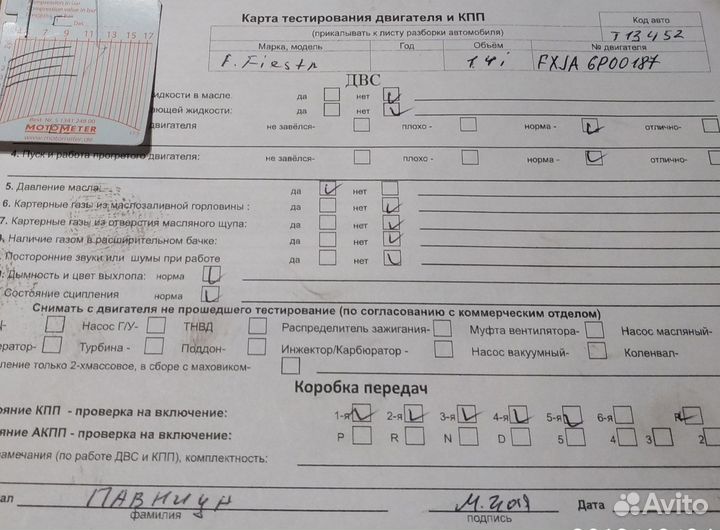 Compression value in bar
5 7 9 11 13 15 17
Best. Nr. 5 1341 249 00
MOTOMETER
www.motometer.de
Карта тестирования двигателя и КПП
(прикалывать к листу разборки автомобиля)
Код авто
T13452
Марка, модель Год Объём № двигателя
F. Fiesta 1.4i FXJA 6P00187
ДВС
жидкости в масле. да нет
ющей жидкости: да нет
двигателя не завёлся- плохо - норма - отлично-
4. Пуск и работа прогретого двигателя: не завёлся- плохо - норма - отлично-
5. Давление масла: да нет
6. Картерные газы из маслозаливной горловины : да нет
7. Картерные газы из отверстия масляного щупа: да нет
Наличие газом в расширительном бачке: да нет
Посторонние звуки или шумы при работе да нет
Дымность и цвет выхлопа: норма
Состояние сципления норма
Снимать с двигателя не прошедшего тестирование (по согласованию с коммерческим отделом)
Насос Г/У- ТНВД Распределитель зажигания- Муфта вентилятора- Насос масляный-
ератор- Турбина - Поддон- Инжектор/Карбюратор - Насос вакуумный- Коленвал-
ление только 2-хмассовое, в сборе с маховиком-
Коробка передач
ояние КПП - проверка на включение: 1-я 2-я 3-я 4-я 5-я 6-я R
яние АКПП - проверка на включение: P R N D 5 4 3 2
амечания (по работе ДВС и КПП), комплектность:
ал Дата
фамилия подпись
Avito